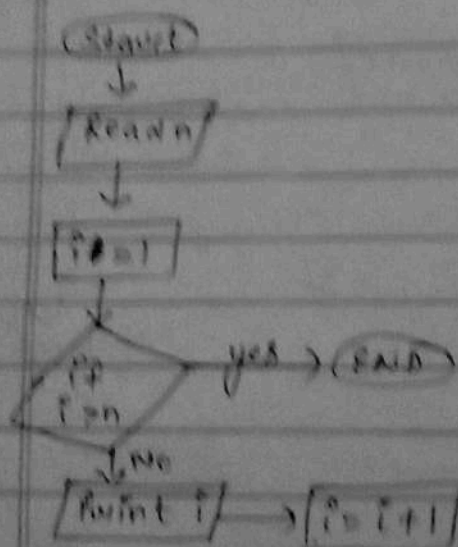 Read n
i = 1
if
i > n
yes
END
No
Print i
i = i + 1